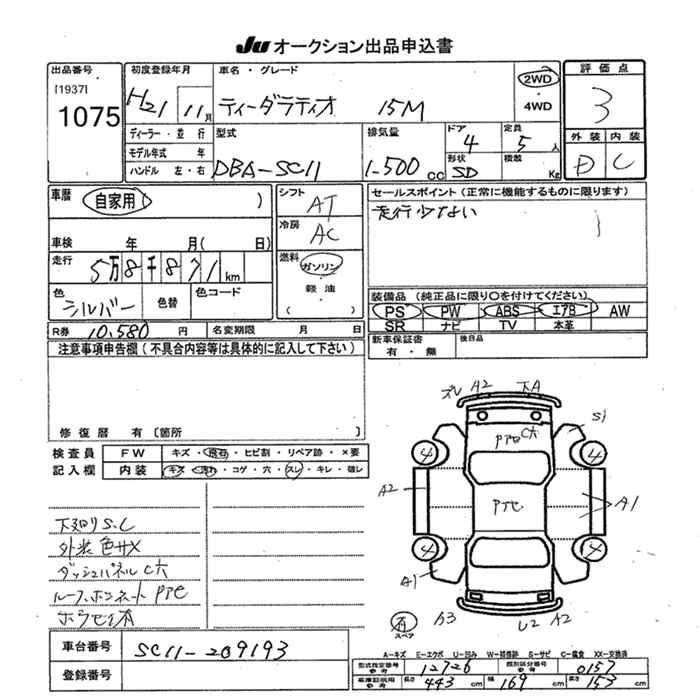 JU オークション出品申込書
出品番号
[1937]
1075
初度登録年月
H21 11月
車名・グレード
ティーダラティオ 15M
2WD
・
4WD
評価点
3
外装 内装
D C
ディーラー・並行
モデル年式 年
ハンドル 左・右
型式
DBA-SC11
排気量
1-500 CC
ドア
4
定員
5人
形状
SD
積載
Kg
車歴
自家用( )
車検 年 月( 日)
走行
5万8千871km
色
シルバー
色替
色コード
R券 10,580 円
名変期限 月 日
シフト
AT
冷房
AC
燃料
ガソリン
・
軽油
・
( )
セールスポイント(正常に機能するものに限ります)
走行少ない
装備品(純正品に限り○を付けてください)
PS PW ABS エアB AW
SR ナビ TV 本革
新車保証書
有・無
後日品
注意事項申告欄(不具合内容等は具体的に記入して下さい)
修復歴 有〔箇所 〕
検査員
記入欄
FW キズ・飛石・ヒビ割・リペア跡・×要
内装 キズ・汚れ・コゲ・穴・スレ・キレ・破レ
下廻りS.C
外装色サメ
ダッシュパネルC穴
ルーフ、ボンネットPTC
ズレ A2 下A
S1
4 4
A2 A1
4 4
A1
A3 U2 A2
有
スペア
A-キズ E-エクボ U-凹み W-補修跡 S-サビ C-腐食 XX-交換済
車台番号 SC11-209193
登録番号
型式指定番号
参考
12726
類別区分番号
参考
0157
長さ 443 cm 幅 169 cm 高さ 153 cm